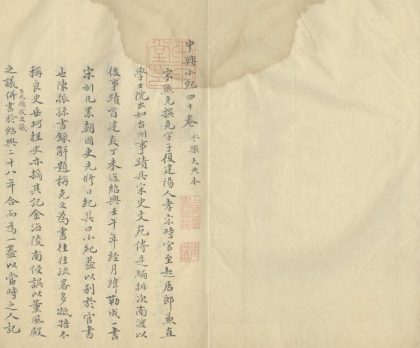 中興小紀四十卷 永樂大典本
宋熊克撰克字子復建陽人孝宗時官至起居郎兼直
學士院出知台州事蹟具宋史文苑傳是編排次南渡以
後事蹟首建炎丁未迄紹興壬午年經月緯勒成一書
宋制凡累朝國史先修日紀其曰小紀蓋以別於官書
也陳振孫書錄解題稱克之為書往往疏畧多牴牾不
稱良史岳珂桯史亦摘其記金海陵南侵誤以薰風殿
之議併書於紹興二十八年合而為一蓋以當時之人記